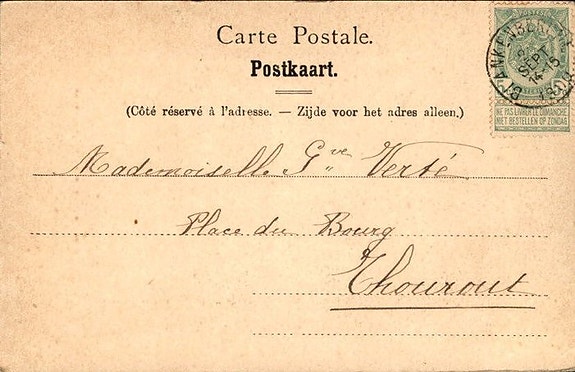 Carte Postale.
Postkaart.
(Côté réservé à l'adresse. — Zijde voor het adres alleen.)
NE PAS LIVRER LE DIMANCHE
NIET BESTELLEN OP ZONDAG
Mademoiselle Gve Verté
Place du Bourg
Thourout